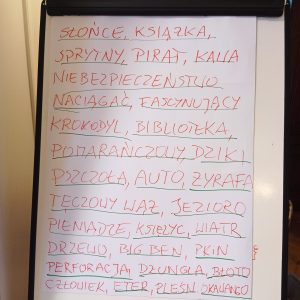 SŁOŃCE, KSIĄŻKA,
SPRYTNY, PIRAT, KALIA
NIEBEZPIECZEŃSTWO
NACIĄGAĆ, FASCYNUJĄCY
KROKODYL, BIBLIOTEKA,
POMARAŃCZOWY, DZIKI
PSZCZOŁA, AUTO, ŻYRAFA
TĘCZOWY WĄŻ, JEZIORO
PIENIĄDZE, KSIĘŻYC, WIATR
DRZEWO, BIG BEN, PKiN
PERFORACJA, DŻUNGLA, BŁOTO
CZŁOWIEK, ETER, PLEŚŃ, OKAWANGO